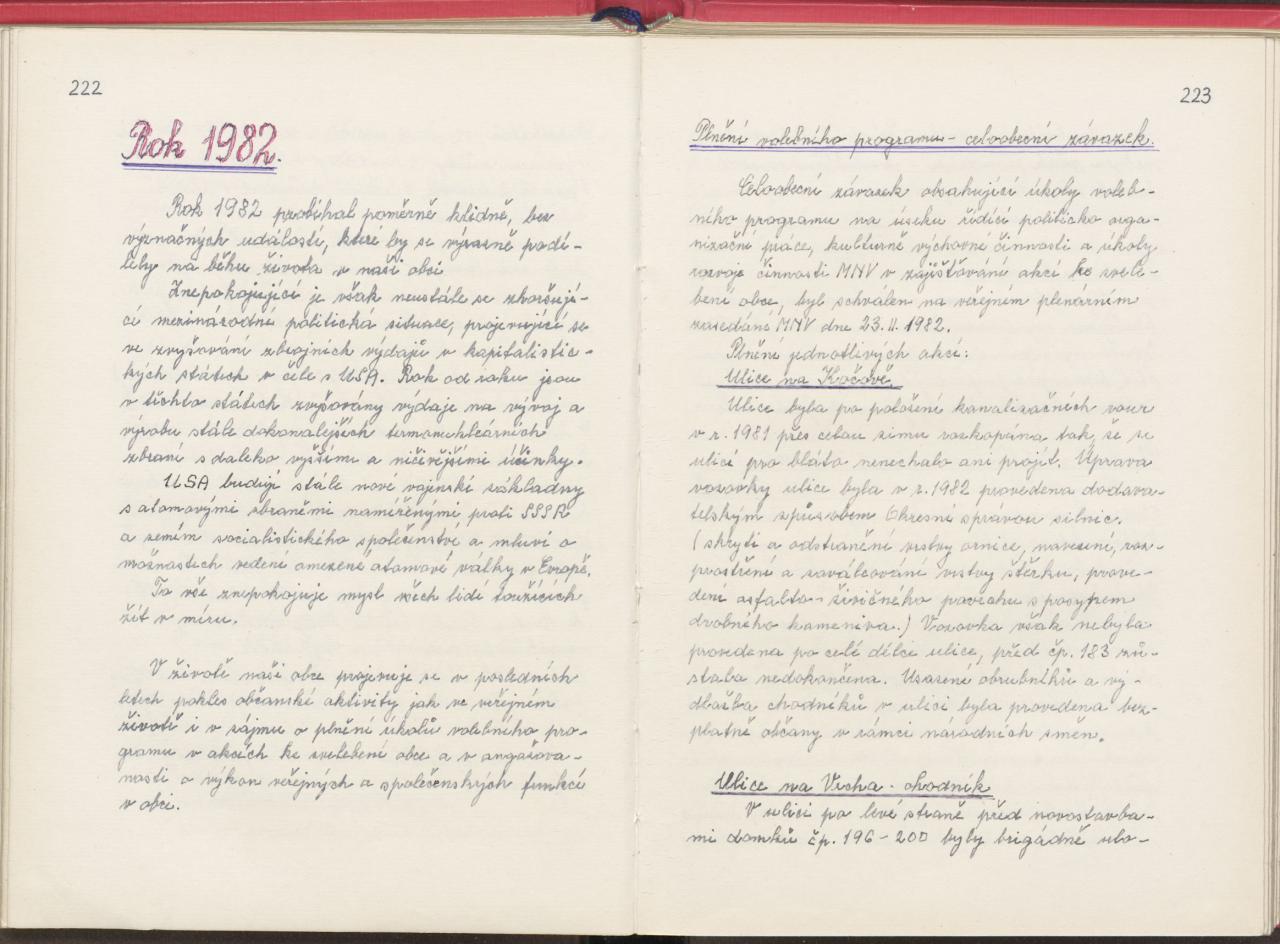 222
Rok 1982.
Rok 1982 probíhal poměrně klidně, bez
význačných událostí, které by se výrazně podí-
lely na běhu života v naší obci
Znepokojující je však neustále se zhoršují-
cí mezinárodní politická situace, projevující se
ve zvyšování zbrojních výdajů v kapitalistic-
kých státech v čele s USA. Rok od roku jsou
v těchto státech zvyšovány výdaje na vývoj a
výrobu stále dokonalejších termonukleárních
zbraní s daleko vyššími a ničivějšími účinky.
USA budují stále nové vojenské základny
s atomovými zbraněmi namířenými proti SSSR
a zemím socialistického společenství a mluví o
možnostech vedení omezené atomové války v Evropě.
To vše znepokojuje mysl všech lidí toužících
žít v míru.
V životě naší obce projevuje se v posledních
letech pokles občanské aktivity jak ve veřejném
životě i v zájmu o plnění úkolů volebního pro-
gramu v akcích ke zvelebení obce a v angažova-
nosti o výkon veřejných a společenských funkcí
v obci.
223
Plnění volebního programu - celoobecní závazek.
Celoobecní závazek obsahující úkoly voleb-
ního programu na úseku řídící politicko orga-
nizační práce, kulturně výchovné činnosti a úkoly
rozvoje činnosti MNV v zajišťování akcí ke zvele-
bení obce, byl schválen na veřejném plenárním
zasedání MNV dne 23.II.1982.
Plnění jednotlivých akcí:
Ulice na Kočově
Ulice byla po položení kanalizačních rour
v r. 1981 přes celou zimu rozkopána tak, že se
ulicí pro bláto nenechalo ani projít. Úprava
vozovky ulice byla v r. 1982 provedena dodava-
telským způsobem Okresní správou silnic.
(skrytí a odstranění vrstvy ornice, navezení, roz-
prostření a zaválcování vrstvy štěrku, prove-
dení asfalto-živičného povrchu s posypem
drobného kameniva.) Vozovka však nebyla
provedena po celé délce ulice, před čp. 183 zů-
stala nedokončena. Usazení obrubníků a vý-
dlažba chodníků v ulici byla provedena bez-
platně občany v rámci národních směn.
Ulice na Vrcha - chodník
V ulici po levé straně před novostavba-
mi domků čp. 196-200 byly brigádně ulo-